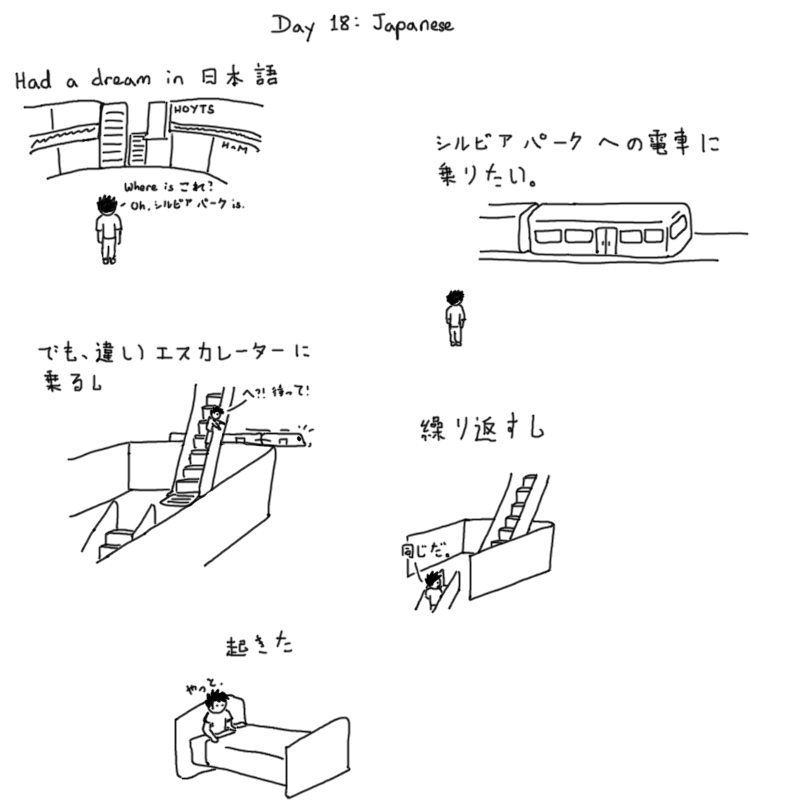 Day 18: Japanese
Had a dream in 日本語
HOYTS
H&M
Where is これ?
Oh, シルビア パーク is.
シルビア パーク への電車に
乗りたい。
でも、違い エスカレーターに
乗るし
へ?! 待って!
繰り返すし
同じだ。
起きた
やっと.